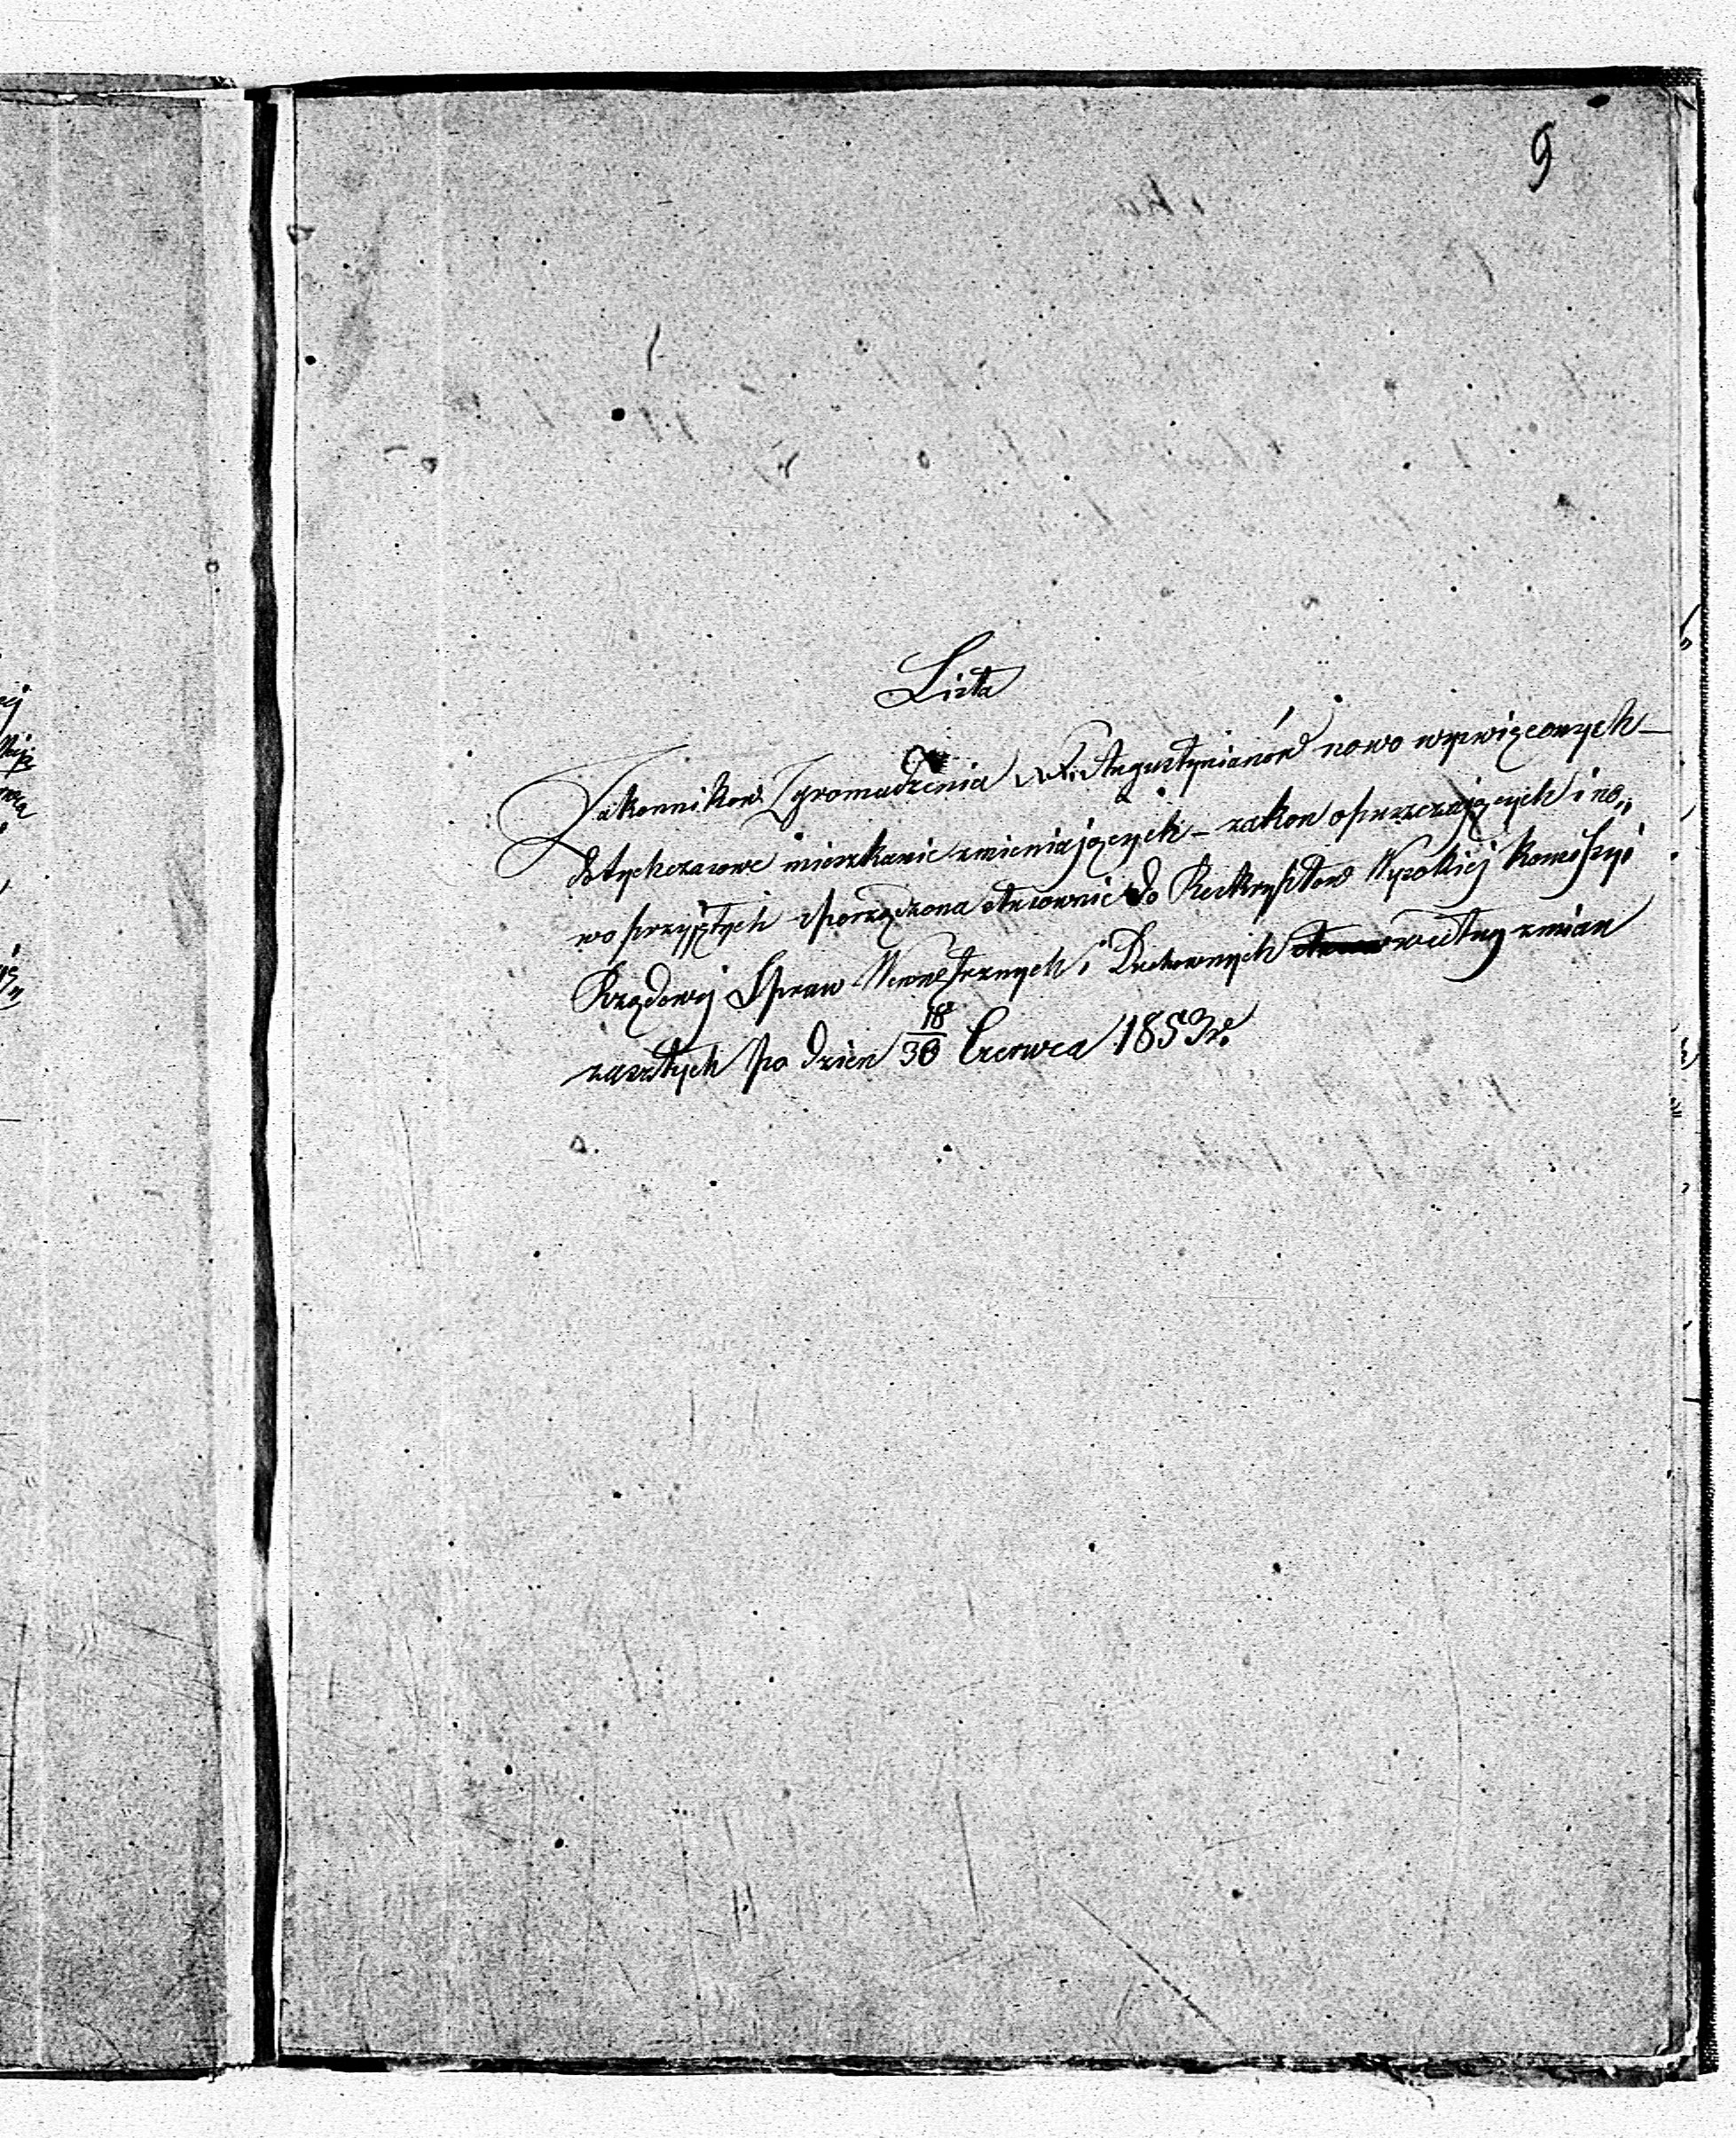 9
Lista
Zakonnikow Zgromadzenia XX. Augustynianów nowo wyswięconych –
dotychczasowe mieszkanie zmieniających – zakon opuszczających i no„
wo przyjętych sporządzona stosownie do Reskryptow Wysokiej Komissyi
Rządowej Spraw Wewnętrznych i Duchownych według zmian
zaszłych po dzien 18/30 Czerwca 1853 r.